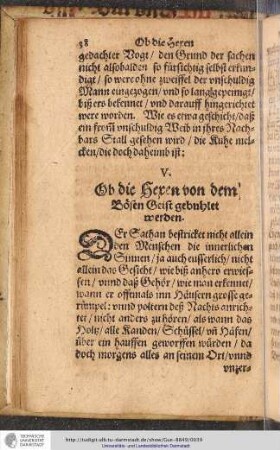 38 Ob die Hexen
gedachter Vogt / den Grund der sachen
nicht alsobalden so fürsichtig selbst erkun-
digt / so were ohne zweiffel der vnschuldig
Mann eingezogen / vnd so lang gepeinigt /
biß ers bekennet / vnd darauff hingerichtet
were worden. Wie es etwa geschicht / daß
ein from̃ vnschuldig Weib in jhres Nach-
bars Stall gesehen wird / die Kuhe mel-
cken / die doch daheim ist:
V.
Ob die Hexen von dem
Bösen Geist gebuhlet
werden.
DEr Sathan bestricket nicht allein
den Menschen die innerlichen
Sinnen / ja auch eusserlich / nicht
allein das Gesicht / wie biß anhero erwie-
sen / vnnd daß Gehör / wie man erkennet /
wann er offtmals inn Häusern grosse ge-
rümpel: vnnd poltern deß Nachts anrich-
tet / nicht anders zu hören / als wann das
Holtz / alle Kanden / Schüssel / vñ Häfen /
über ein hauffen geworffen würden / da
doch morgens alles an seinem Ort / vnnd
vnzer-
TECHNISCHE
UNIVERSITÄT
DARMSTADT
http://tudigit.ulb.tu-darmstadt.de/show/Gue-4849/0039
Universitäts- und Landesbibliothek Darmstadt